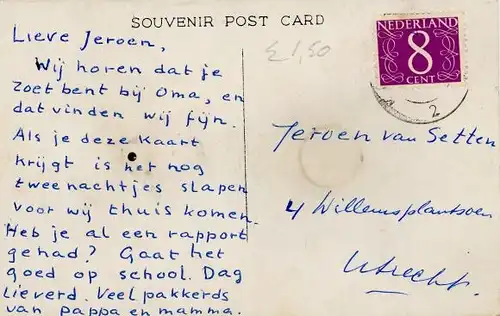 SOUVENIR POST CARD
£1,50
NEDERLAND
8
CENT
2
Lieve Jeroen,
Wij horen dat je
zoet bent bij Oma, en
dat vinden wij fijn.
Als je deze kaart
krijgt is het nog
tweenachtjes slapen
voor wij thuis komen.
Heb je al een rapport
gehad? Gaat het
goed op school. Dag
Lieverd. Veel pakkerds
van pappa en mamma.
Jeroen van Setten
4 Willemsplantsoen
Utrecht.